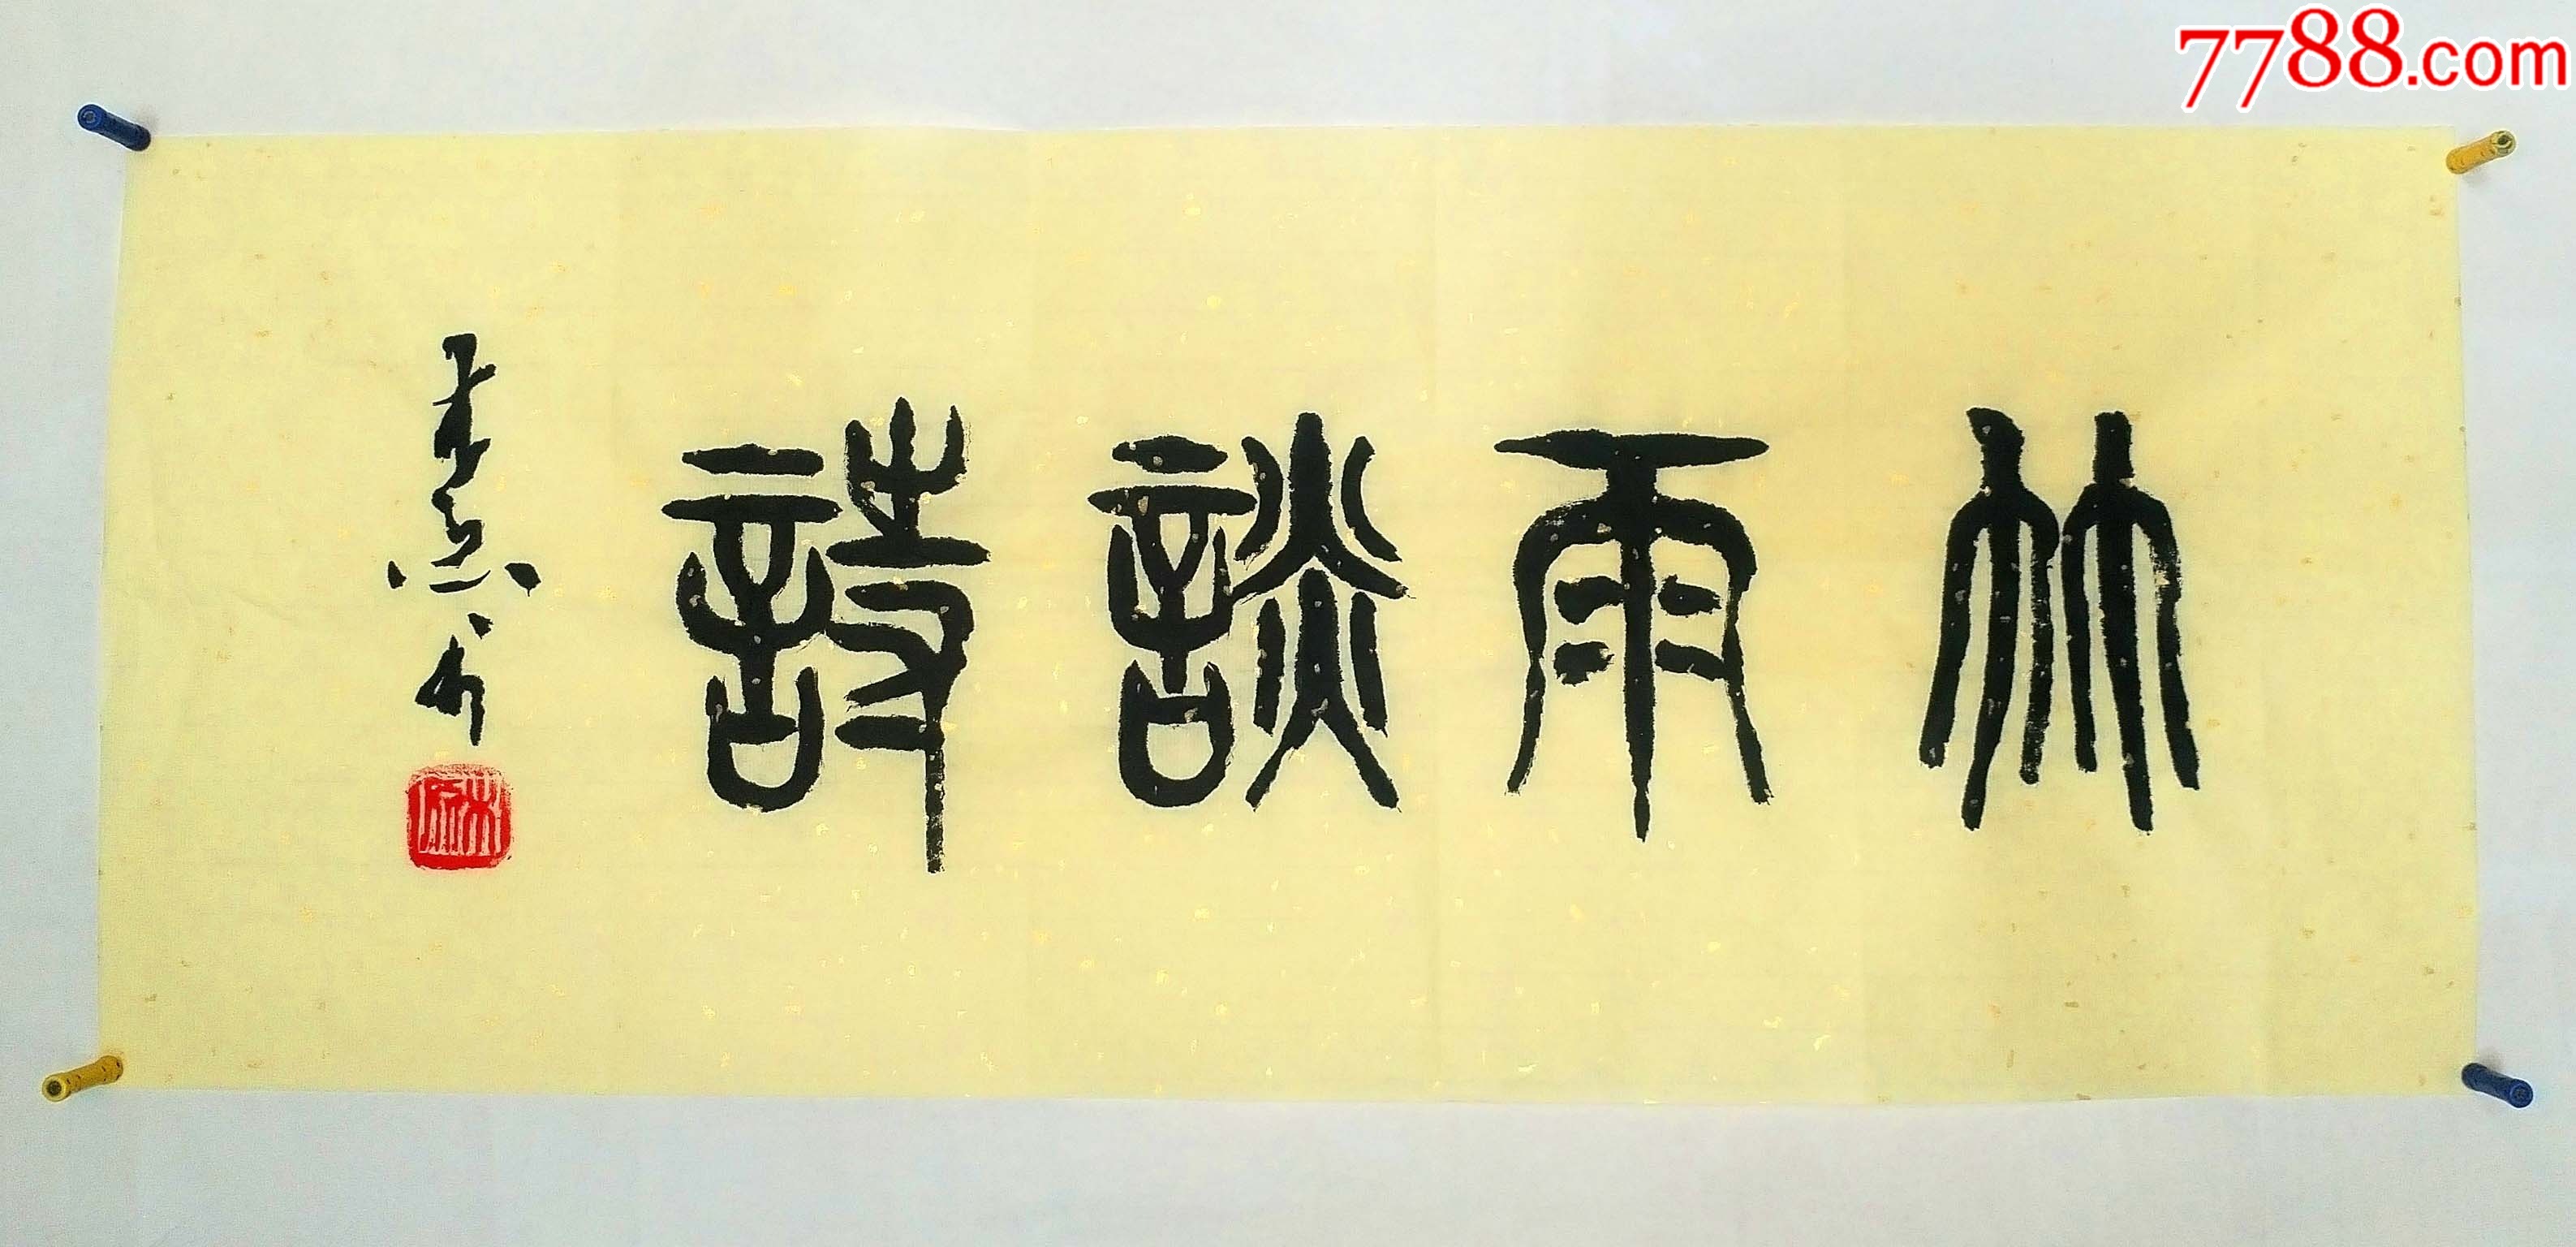 7788.com
竹雨談詩